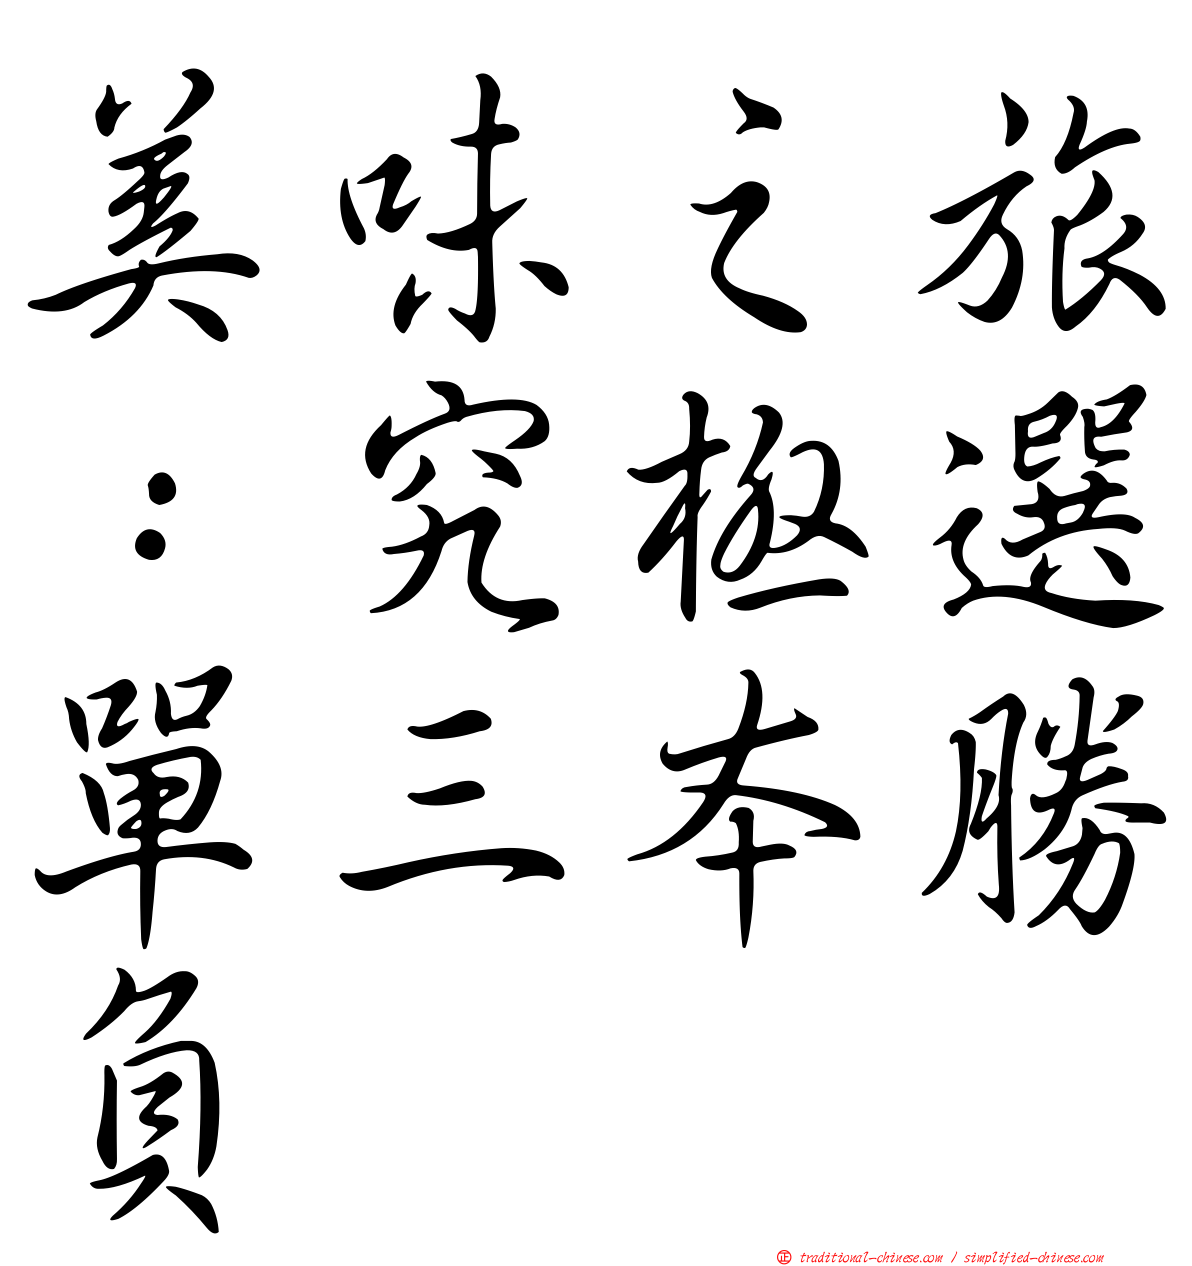 美味之旅
：究極選
單三本勝
負
㊣ traditional-chinese.com / simplified-chinese.com